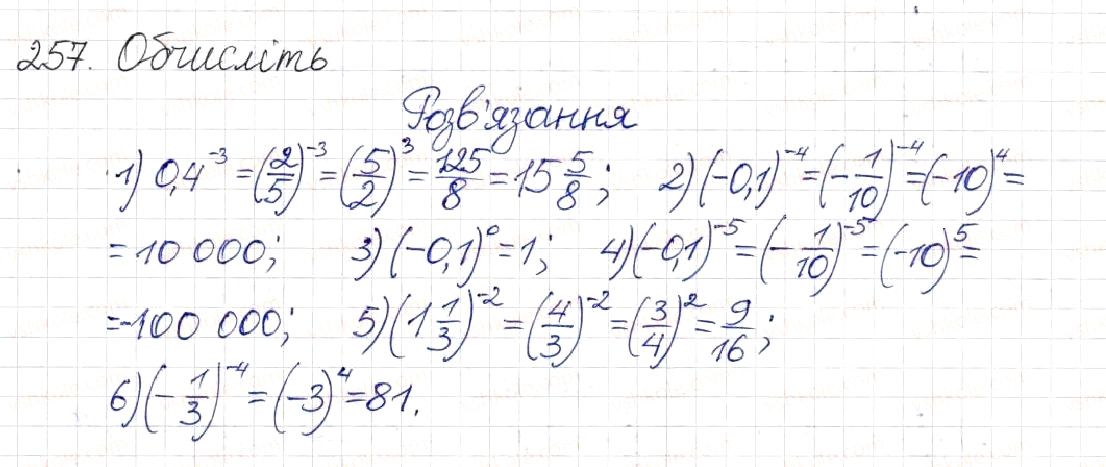 257. Обчисліть
Розв'язання
1) 0,4⁻³ = (2/5)⁻³ = (5/2)³ = 125/8 = 15 5/8; 2) (-0,1)⁻⁴ = (-1/10)⁻⁴ = (-10)⁴ =
= 10 000; 3) (-0,1)⁰ = 1; 4) (-0,1)⁻⁵ = (-1/10)⁻⁵ = (-10)⁵ =
= -100 000; 5) (1 1/3)⁻² = (4/3)⁻² = (3/4)² = 9/16;
6) (-1/3)⁻⁴ = (-3)⁴ = 81.